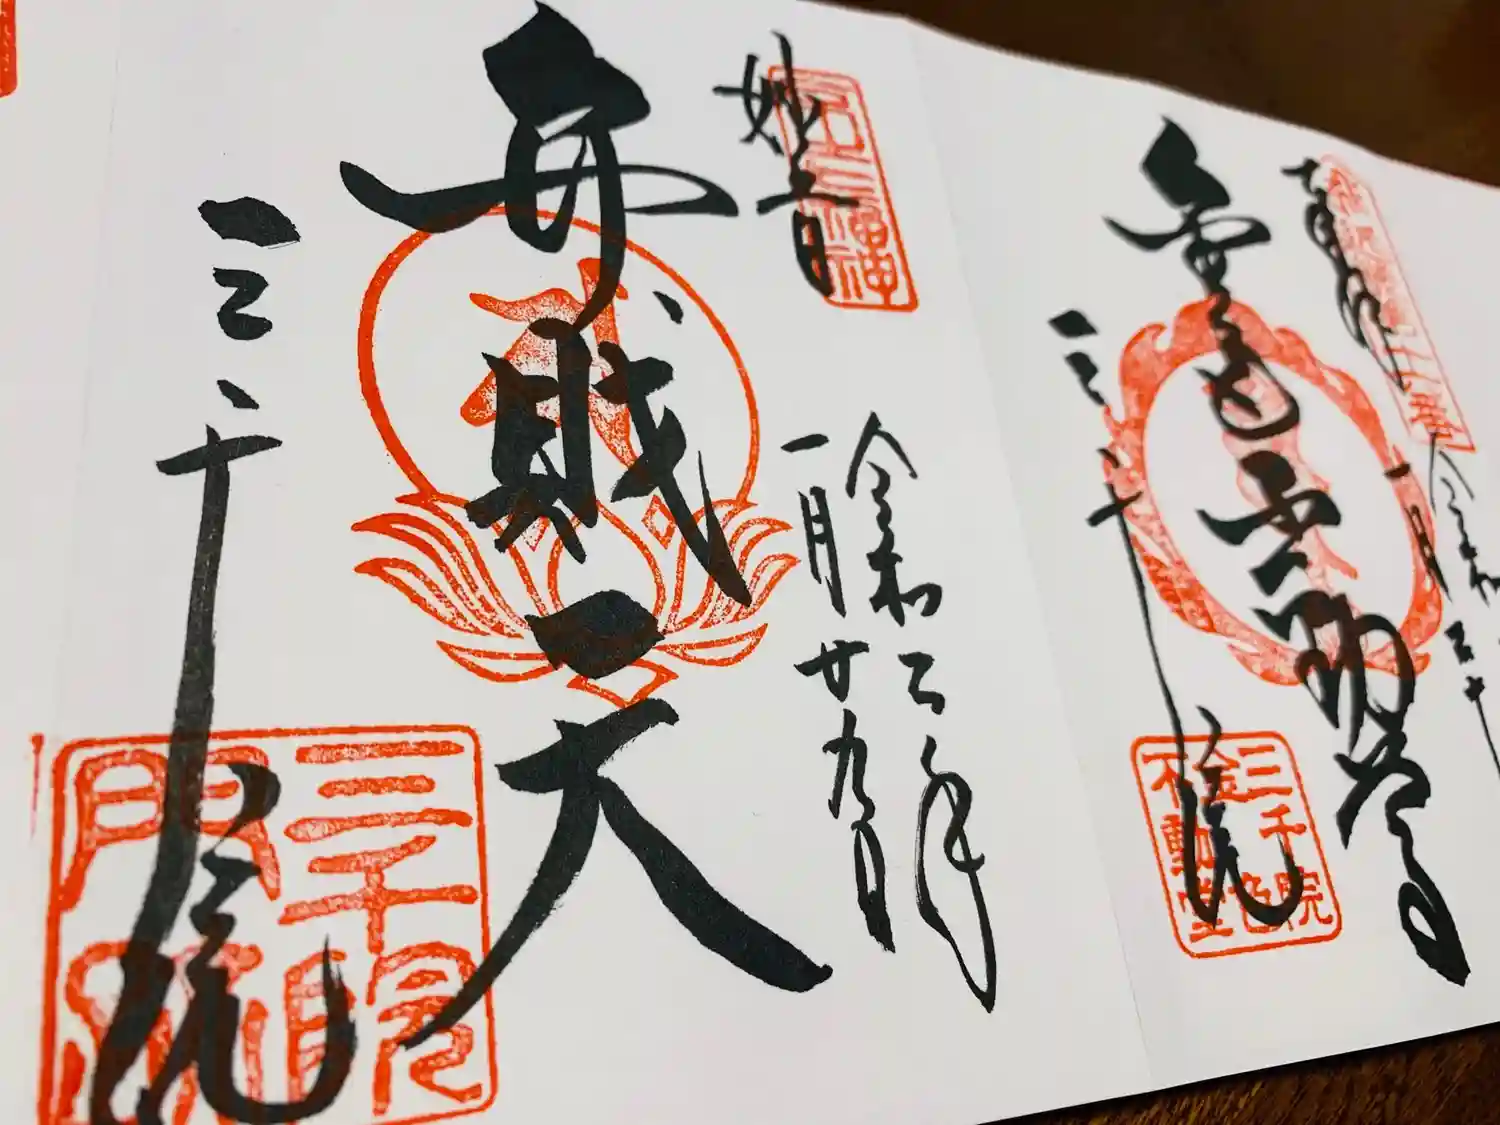 令和
一月
金色不動尊
三千院
三千院
金色
不動堂
妙音
令和二年
一月廿九日
弁財天
三千院
三千院
門跡